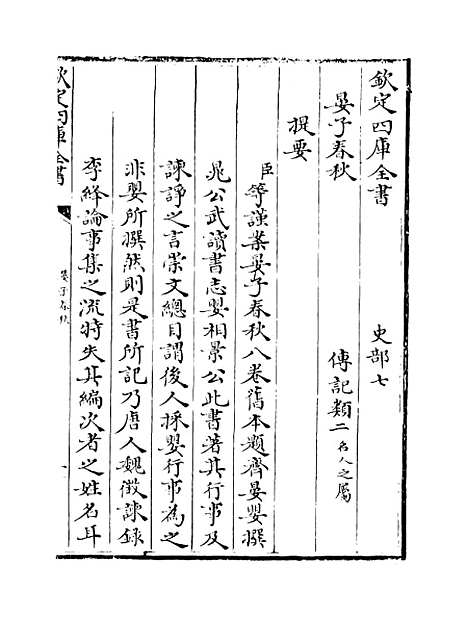 欽定四庫全書 史部七
晏子春秋 傳記類二名人之屬
提要
臣等謹案晏子春秋八卷舊本題齊晏嬰撰
晁公武讀書志嬰相景公此書著其行事及
諫諍之言崇文總目謂後人採嬰行事為之
非嬰所撰然則是書所記乃唐人魏徵諫録
李絳論事集之流特失其編次者之姓名耳
欽定四庫全書
晏子春秋
一